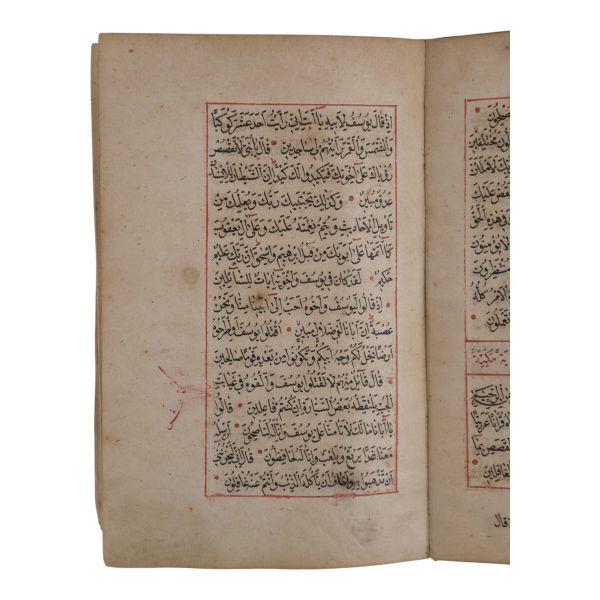 مختلفين
لاملأن
نقص عليك
هذه الحق
لا يؤمنون
منتظرون
الامر كله
تعملون
مكية
عربيا
القصص بما
قال
إذ قال يوسف لأبيه يا أبت إني رأيت أحد عشر كوكبا
والشمس والقمر رأيتهم لي ساجدين قال يا بني لا تقصص
رؤياك على إخوتك فيكيدوا لك كيدا إن الشيطان للإنسان
عدو مبين وكذلك يجتبيك ربك ويعلمك من
تأويل الأحاديث ويتم نعمته عليك وعلى آل يعقوب
كما أتمها على أبويك من قبل إبرهيم وإسحق إن ربك عليم
حكيم لقد كان في يوسف وإخوته آيات للسائلين
إذ قالوا ليوسف وأخوه أحب إلى أبينا منا ونحن
عصبة إن أبانا لفي ضلال مبين اقتلوا يوسف أو اطرحوه
أرضا يخل لكم وجه أبيكم وتكونوا من بعده قوما صالحين
قال قائل منهم لا تقتلوا يوسف وألقوه في غيابت
الجب يلتقطه بعض السيارة إن كنتم فاعلين قالوا
يا أبانا مالك لا تأمنا على يوسف وإنا له لناصحون أرسله
معنا غدا يرتع ويلعب وإنا له لحافظون قال إني ليحزنني
أن تذهبوا به وأخاف أن يأكله الذئب وأنتم عنه غافلون